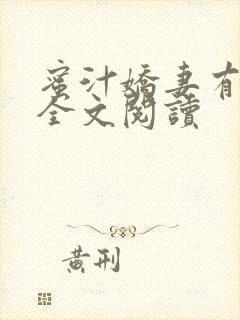 蜜汁嬌妻有
全文閱讀
黃刑